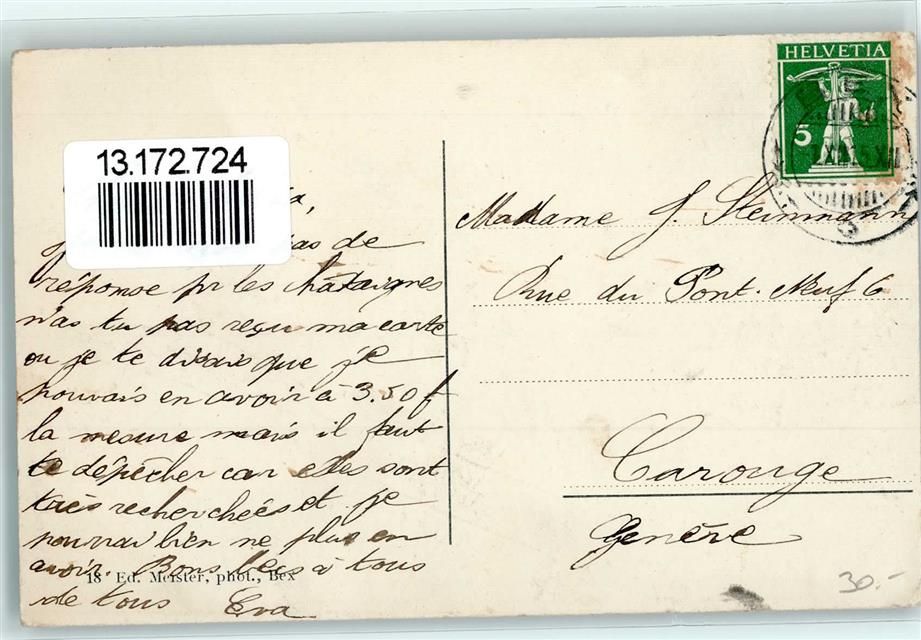 HELVETIA
5
13.172.724
Madame J. Steinmann
Rue du Pont-Neuf 6
Carouge
Genève
pas de
réponse pr les châtaignes
n'as tu pas reçu ma carte
ou je te disais que je
pouvais en avoir à 3.50 f
la mesure mais il faut
te dépêcher car elles sont
très recherchées et je
pourrai bien ne plus en
avoir. Bons becs à tous
de tous Eva
18 Ed. Meister, phot., Bex
30.-